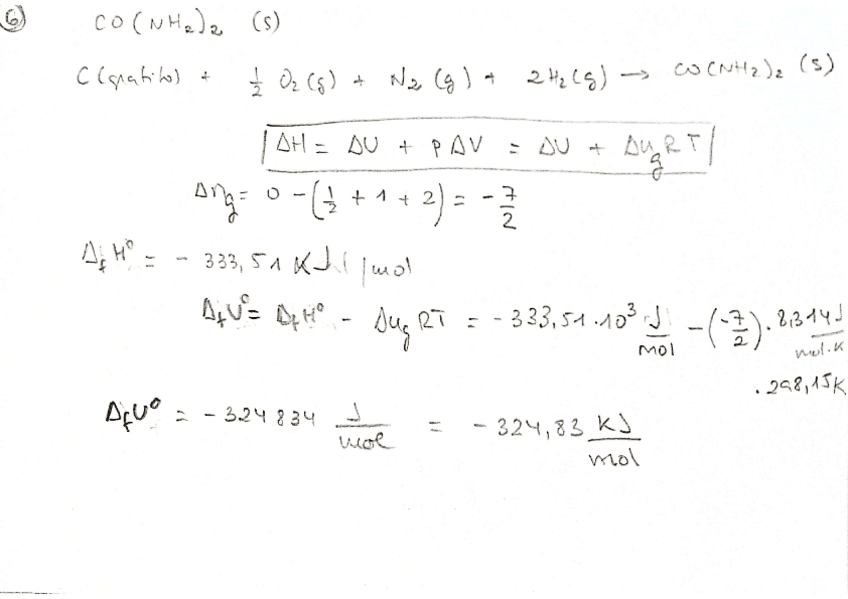 6
CO(NH2)2 (s)
C (grafito) + 1/2 O2 (g) + N2 (g) + 2H2 (g) → CO(NH2)2 (s)
ΔH = ΔU + pΔV = ΔU + Δn_g RT
Δn_g = 0 - (1/2 + 1 + 2) = - 7/2
Δ_f H° = - 333,51 KJ / mol
Δ_f U° = Δ_f H° - Δn_g RT = - 333,51 · 10³ J/mol - (-7/2) · 8,314 J/mol·K
· 298,15K
Δ_f U° = - 324 834 J/mol = - 324,83 KJ/mol